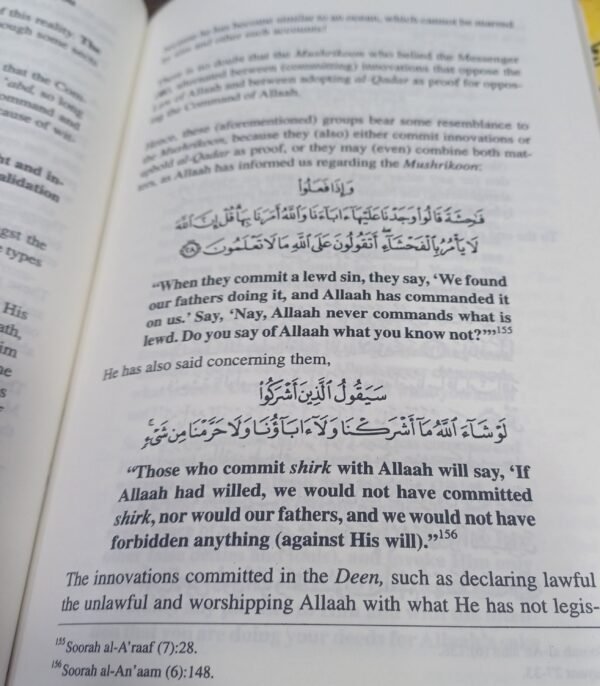 of this reality. The
that the Com-
'ahd, so long
ommand and
ause of wit-
ht and in-
alidation
gst the
types
His
ath,
im
ne
because he has become similar to an ocean, which cannot be marred
There is no doubt that the Mushrikoon who belied the Messenger
alternated between (committing) innovations that oppose the
Law of Allaah and between adopting al-Qadar as proof for oppos-
ing the Command of Allaah.
Hence, these (aforementioned) groups bear some resemblance to
the Mushrikoon, because they (also) either commit innovations or
uphold al-Qadar as proof, or they may (even) combine both mat-
ters, as Allaah has informed us regarding the Mushrikoon:
وَإِذَا فَعَلُوا۟
فَٰحِشَةً قَالُوا۟ وَجَدْنَا عَلَيْهَآ ءَابَآءَنَا وَٱللَّهُ أَمَرَنَا بِهَا قُلْ إِنَّ ٱللَّهَ
لَا يَأْمُرُ بِٱلْفَحْشَآءِ أَتَقُولُونَ عَلَى ٱللَّهِ مَا لَا تَعْلَمُونَ ﴿٢٨﴾
“When they commit a lewd sin, they say, ‘We found
our fathers doing it, and Allaah has commanded it
on us.’ Say, ‘Nay, Allaah never commands what is
lewd. Do you say of Allaah what you know not?’”155
He has also said concerning them,
سَيَقُولُ ٱلَّذِينَ أَشْرَكُوا۟
لَوْ شَآءَ ٱللَّهُ مَآ أَشْرَكْنَا وَلَآ ءَابَآؤُنَا وَلَا حَرَّمْنَا مِن شَىْءٍ
“Those who commit shirk with Allaah will say, ‘If
Allaah had willed, we would not have committed
shirk, nor would our fathers, and we would not have
forbidden anything (against His will).”156
The innovations committed in the Deen, such as declaring lawful
the unlawful and worshipping Allaah with what He has not legis-
155 Soorah al-A'raaf (7):28.
156 Soorah al-An'aam (6):148.